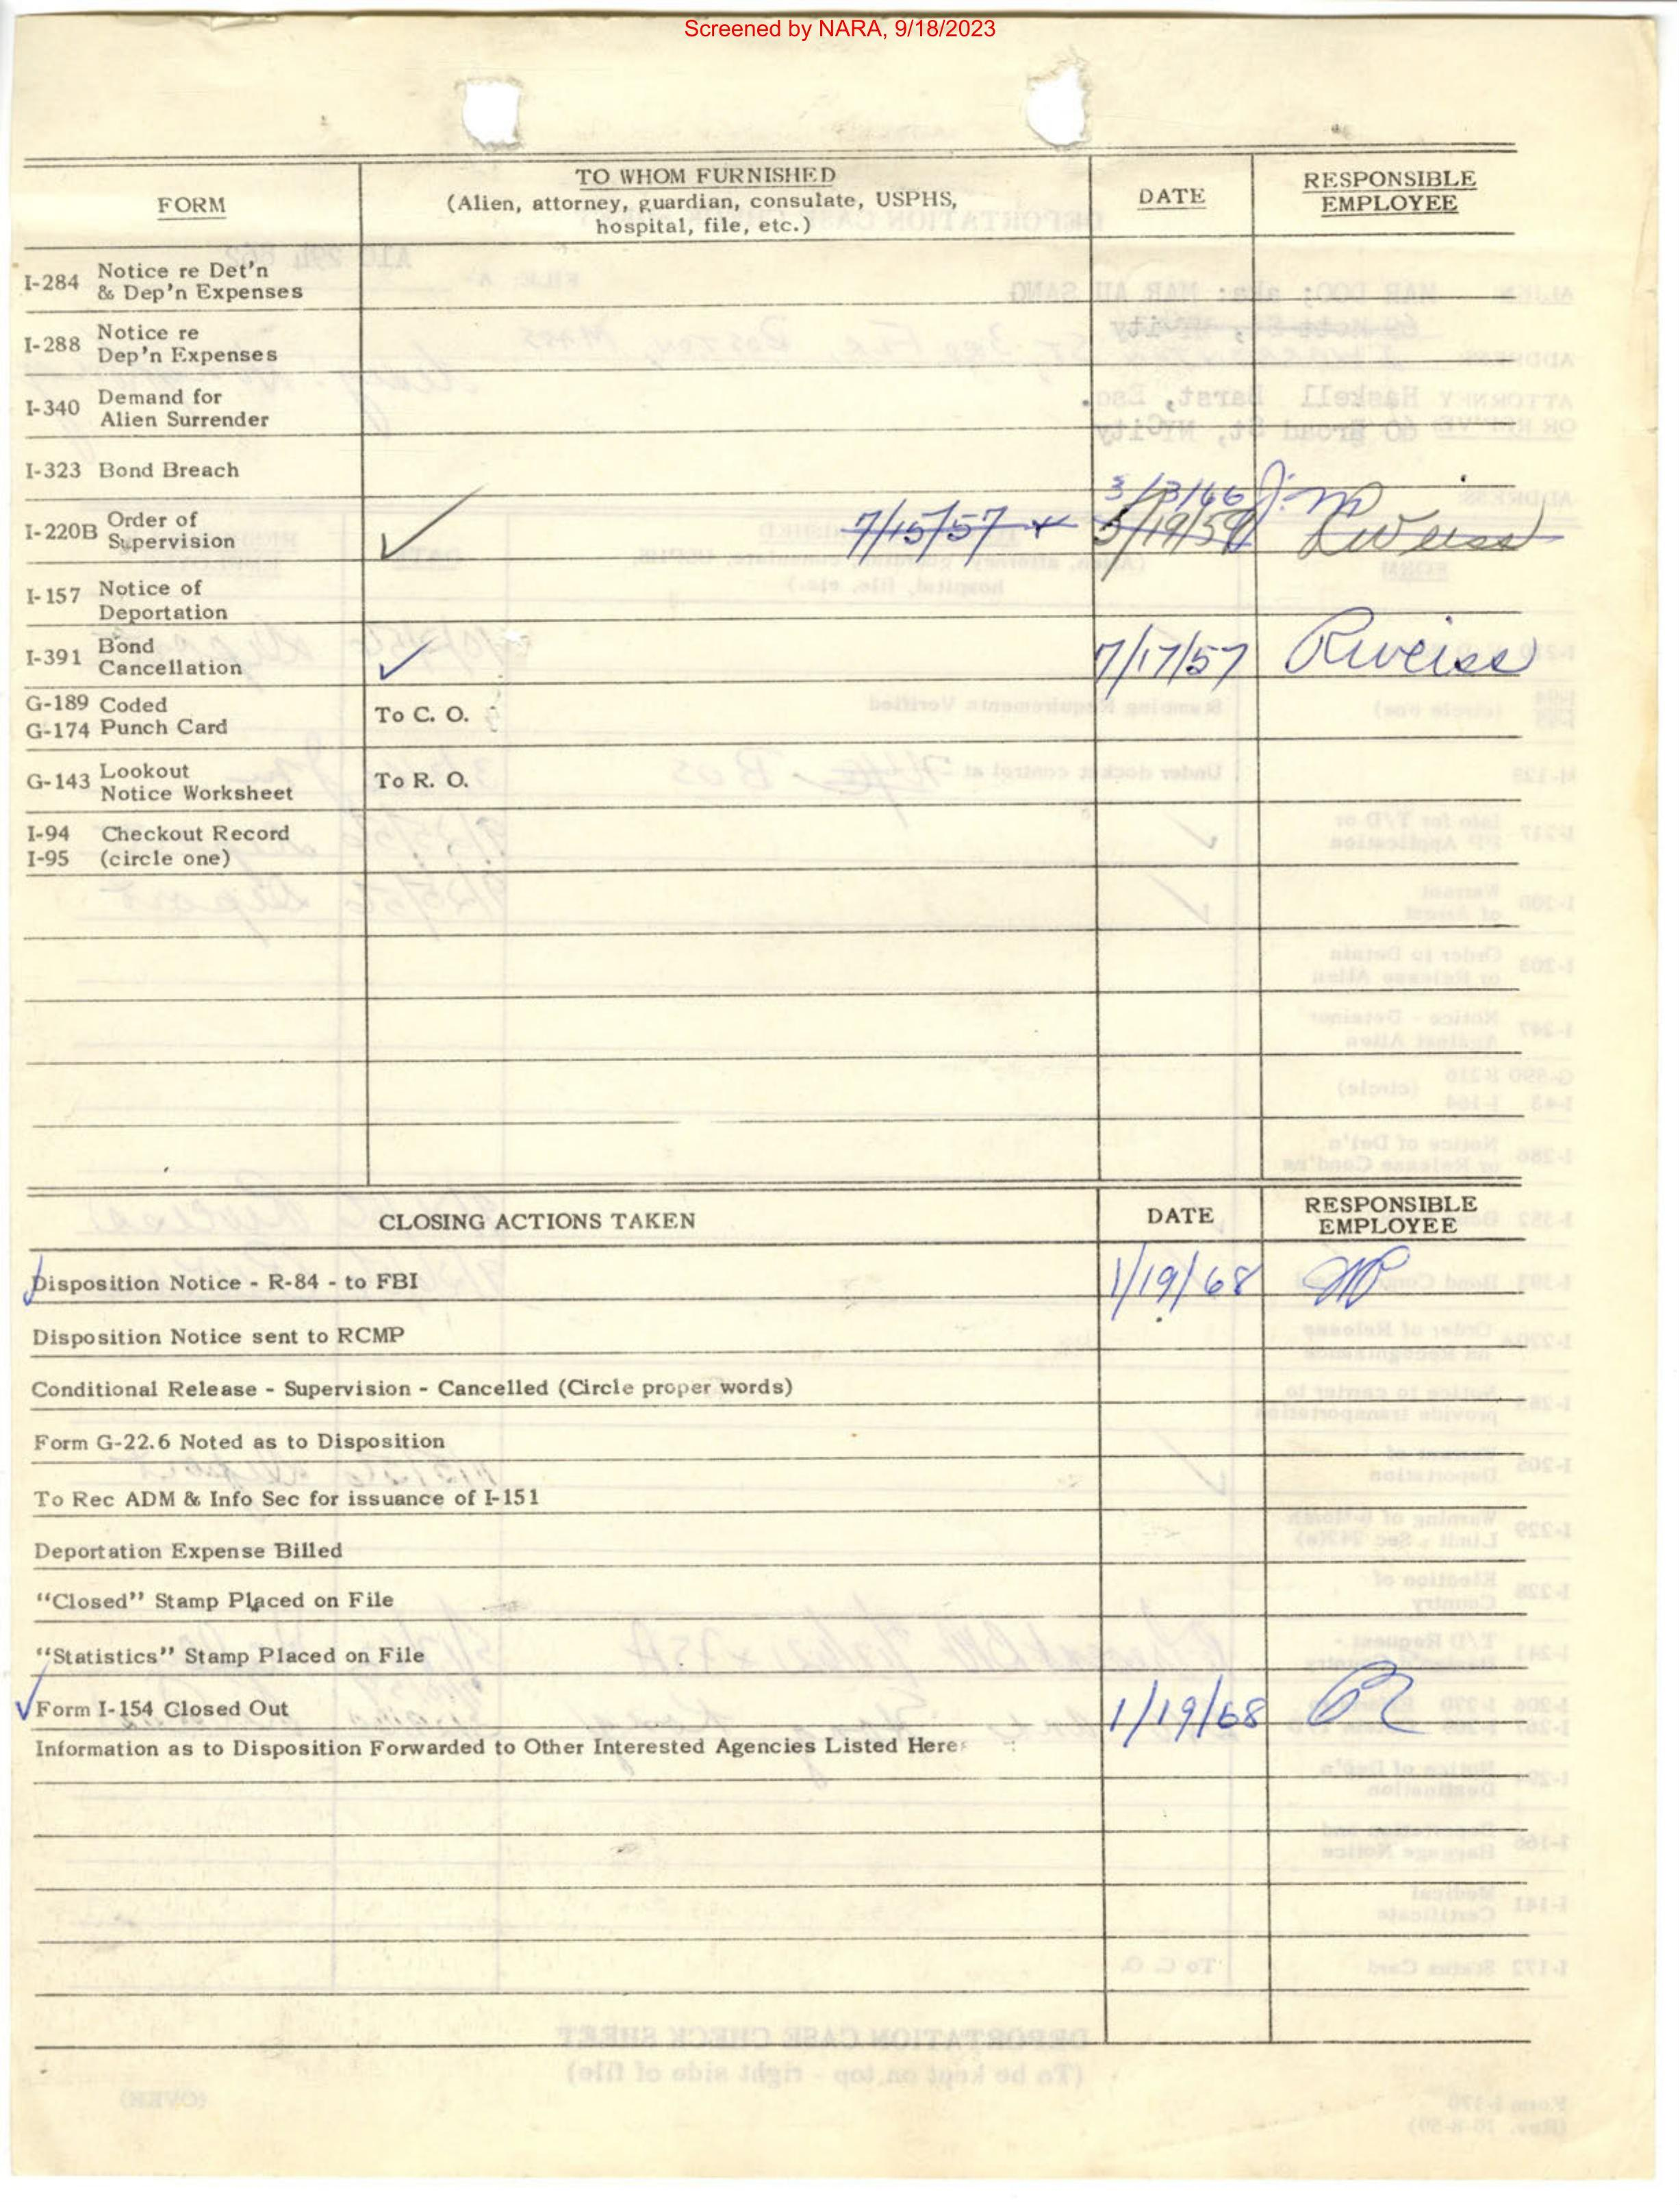 Screened by NARA, 9/18/2023
FORM
TO WHOM FURNISHED
(Alien, attorney, guardian, consulate, USPHS,
hospital, file, etc.)
DATE
RESPONSIBLE
EMPLOYEE
I-284 Notice re Det'n
& Dep'n Expenses
I-288 Notice re
Dep'n Expenses
I-340 Demand for
Alien Surrender
I-323 Bond Breach
3/3/66 J.M
I-220B Order of
Supervision ✓ 7/15/57 + 5/19/59 RWeiss
I-157 Notice of
Deportation
I-391 Bond
Cancellation ✓ 7/17/57 RWeiss
G-189 Coded
G-174 Punch Card To C. O.
G-143 Lookout
Notice Worksheet To R. O.
I-94 Checkout Record
I-95 (circle one)
CLOSING ACTIONS TAKEN DATE RESPONSIBLE
EMPLOYEE
Disposition Notice - R-84 - to FBI 1/19/68
Disposition Notice sent to RCMP
Conditional Release - Supervision - Cancelled (Circle proper words)
Form G-22.6 Noted as to Disposition
To Rec ADM & Info Sec for issuance of I-151
Deportation Expense Billed
"Closed" Stamp Placed on File
"Statistics" Stamp Placed on File
✓ Form I-154 Closed Out 1/19/68
Information as to Disposition Forwarded to Other Interested Agencies Listed Here: